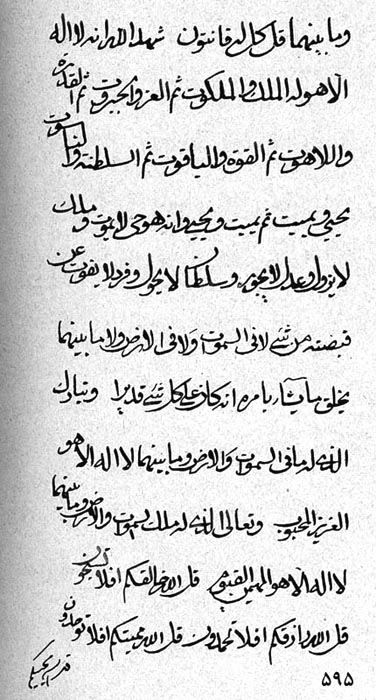 وما بينهما قل كل له قانتون شهد الله انه لا اله
الا هو له الملك والملكوت ثم العز والجبروت ثم القدرة
واللاهوت ثم القوة والياقوت ثم السلطنة والناسوت
يحيي ويميت ثم يميت ويحيي وانه هو حي لا يموت وملك
لا يزول وعدل لا يجور وسلطان لا يحول وفرد لا يفوت عن
قبضته من شئ لا في السموات ولا في الارض ولا ما بينهما
يخلق ما يشاء بامره انه كان على كل شئ قديرا وتبارك
الذي له ما في السموات والارض وما بينهما لا اله الا هو
العزيز المحبوب وتعالى الذي له ملك السموات والارض وما بينهما
لا اله الا هو المهيمن القيوم قل الله خالقكم افلا
قل الله رازقكم افلا تحمدون قل الله مميتكم افلا توحدون
قل الله محييكم
٥٩٥